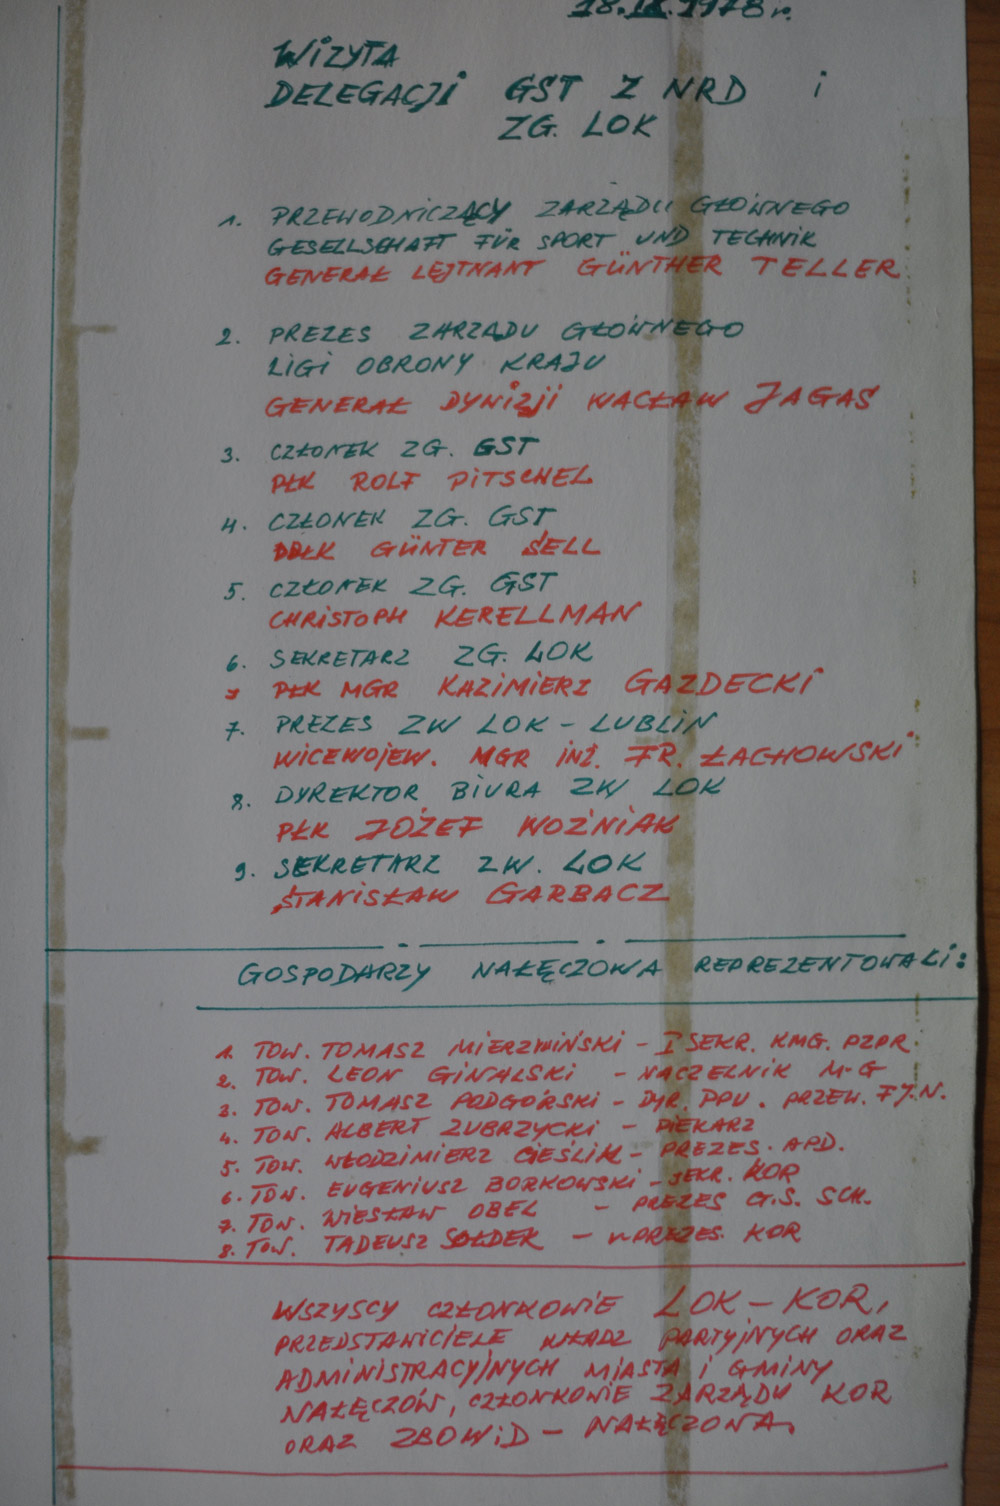 18.IX.1978 r.
WIZYTA
DELEGACJI GST Z NRD i
ZG. LOK
1. PRZEWODNICZĄCY ZARZĄDU GŁÓWNEGO
GESELLSCHAFT FÜR SPORT UND TECHNIK
GENERAŁ LEJTNANT GÜNTHER TELLER
2. PREZES ZARZĄDU GŁÓWNEGO
LIGI OBRONY KRAJU
GENERAŁ DYWIZJI WACŁAW JAGAS
3. CZŁONEK ZG. GST
PŁK ROLF PITSCHEL
4. CZŁONEK ZG. GST
PPŁK GÜNTER SELL
5. CZŁONEK ZG. GST
CHRISTOPH KERELLMAN
6. SEKRETARZ ZG. LOK
PŁK MGR KAZIMIERZ GAZDECKI
7. PREZES ZW LOK - LUBLIN
WICEWOJEW. MGR INŻ. FR. ŁACHOWSKI
8. DYREKTOR BIURA ZW LOK
PŁK JÓZEF WOŹNIAK
9. SEKRETARZ ZW. LOK
STANISŁAW GARBACZ
GOSPODARZY NAŁĘCZOWA REPREZENTOWALI:
1. TOW. TOMASZ MIERZWIŃSKI - I SEKR. KMG. PZPR
2. TOW. LEON GINALSKI - NACZELNIK M-G
3. TOW. TOMASZ PODGÓRSKI - DYR. PPU. PRZEW. FJN.
4. TOW. ALBERT ZUBRZYCKI - PIEKARZ
5. TOW. WŁODZIMIERZ CIEŚLIK - PREZES. APD.
6. TOW. EUGENIUSZ BORKOWSKI - SEKR. KOR
7. TOW. WIESŁAW OBEL - PREZES G.S. SCH.
8. TOW. TADEUSZ SOŁDEK - W-PREZES. KOR
WSZYSCY CZŁONKOWIE LOK - KOR,
PRZEDSTAWICIELE WŁADZ PARTYJNYCH ORAZ
ADMINISTRACYJNYCH MIASTA I GMINY
NAŁĘCZÓW, CZŁONKOWIE ZARZĄDU KOR
ORAZ ZBOWID - NAŁĘCZOWA.